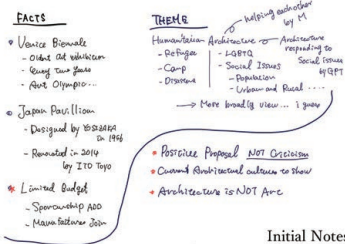 FACTS
• Venice Biennale
- Oldest Art exhibition
- Every two years
- Art Olympic...
• Japan Pavillion
- Designed by YOSIZAKA
in 1956
- Renovated in 2014
by ITO Toyo
* Limited Budget
- Sponsorship ADD
- Manufactures Join
THEME
helping eachother
by M
Humanitarian Architecture
- Refugee
- Camp
- Disasters
- LGBTQ
- Social Issues
- Population
- Urban and Rural ....
Architecture
responding to
Social issues
by GPT
→ More broadly view... i guess
* Positive Proposal NOT Criticism
* Current Architectural cultures to show
* Architecture is NOT Art
Initial Notes